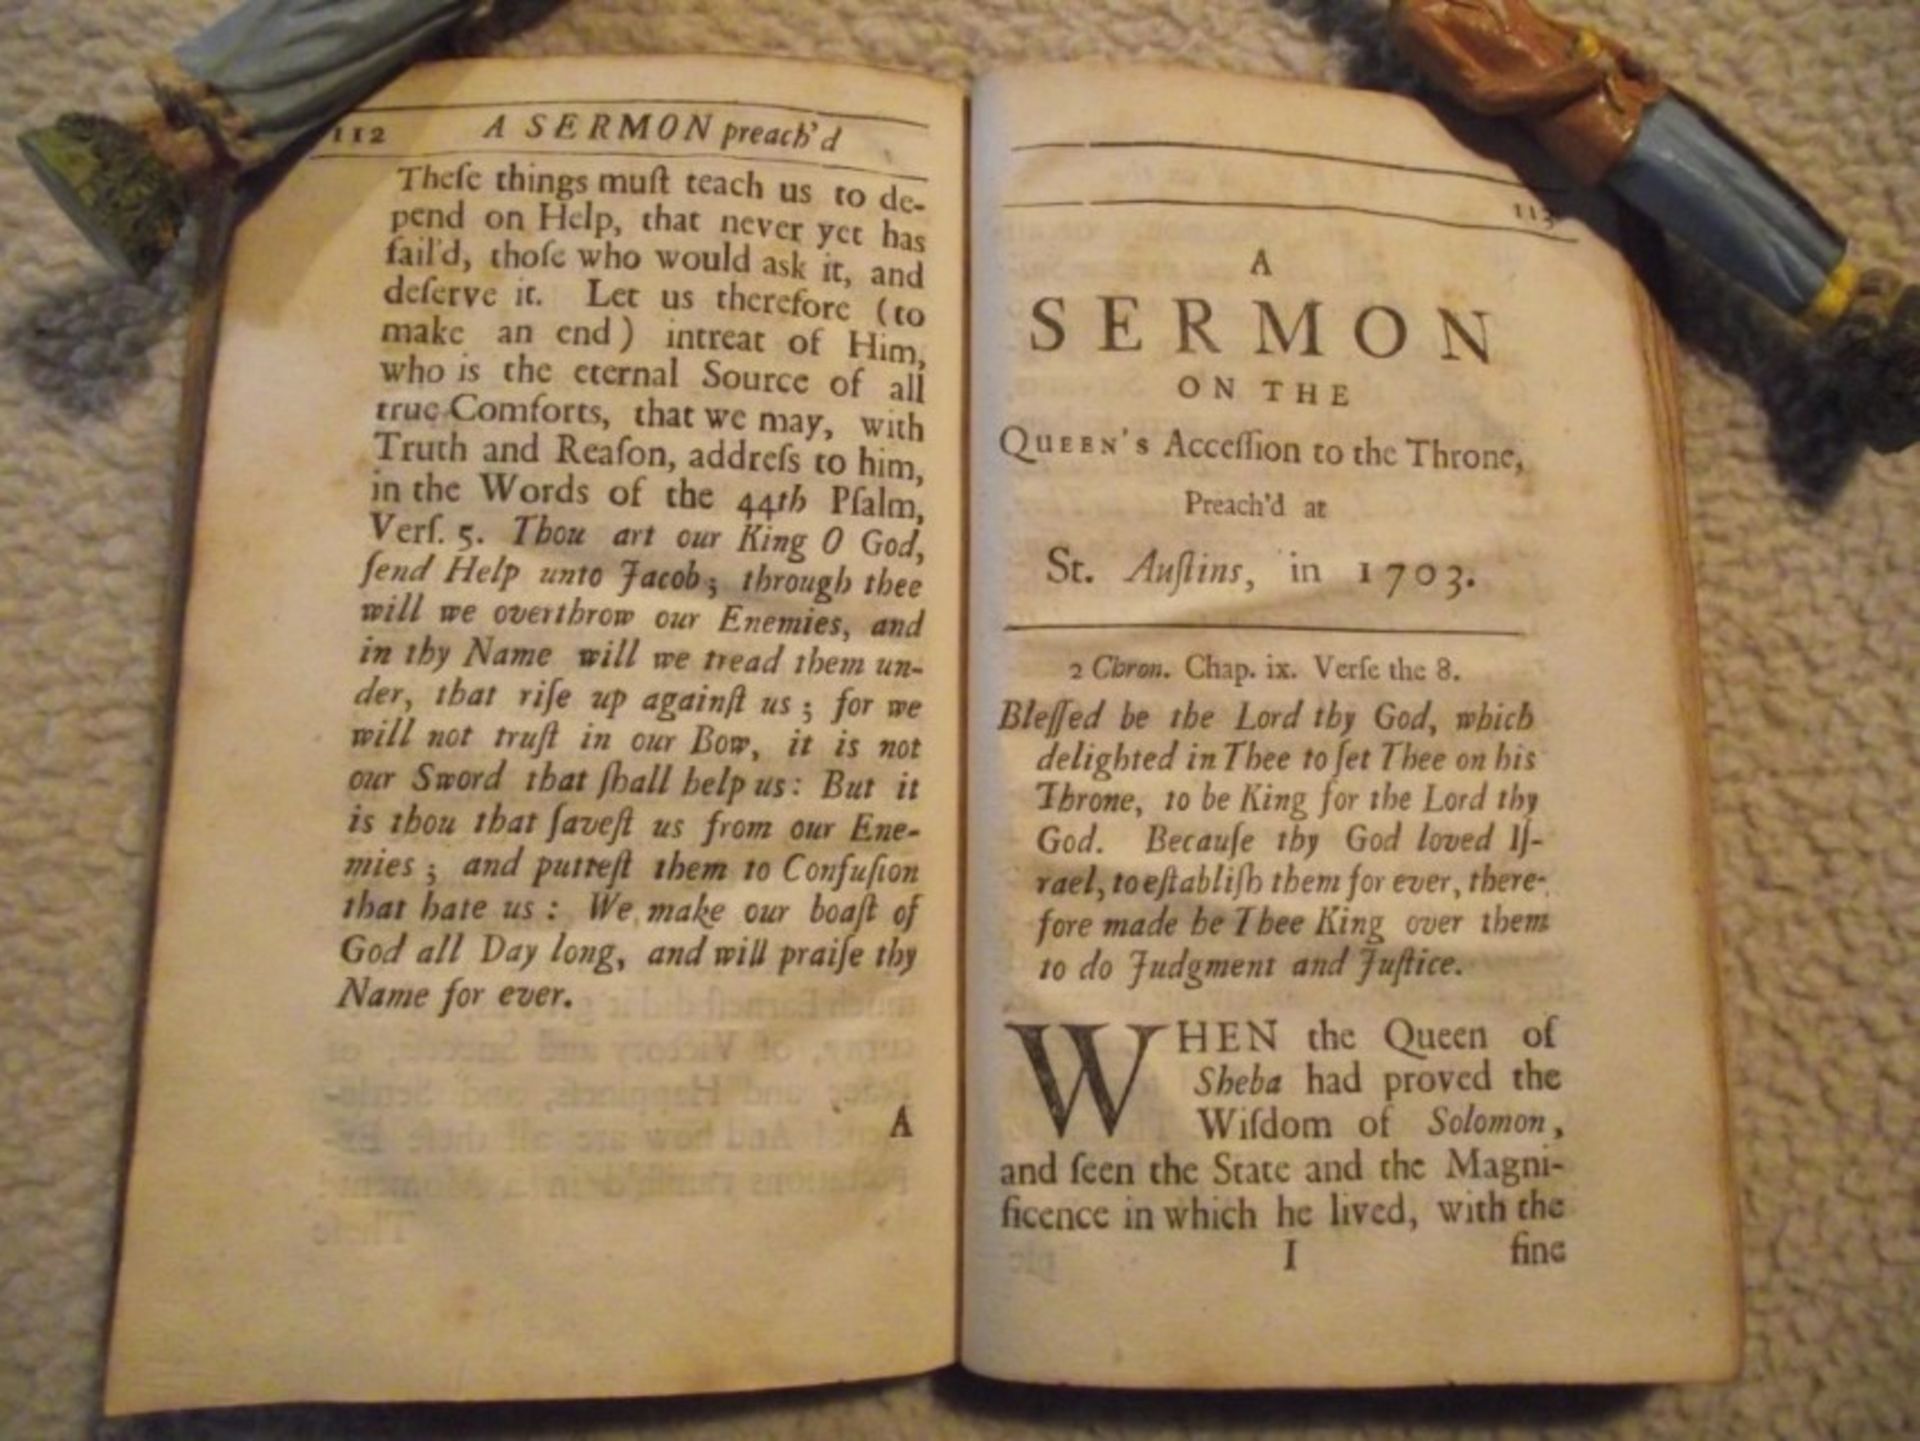 112 A SERMON preach'd
Theſe things muſt teach us to de-
pend on Help, that never yet has
fail'd, thoſe who would ask it, and
deſerve it. Let us therefore (to
make an end) intreat of Him,
who is the eternal Source of all
true Comforts, that we may, with
Truth and Reaſon, addreſs to him,
in the Words of the 44th Pſalm,
Verſ. 5. Thou art our King O God,
ſend Help unto Jacob; through thee
will we overthrow our Enemies, and
in thy Name will we tread them un-
der, that riſe up againſt us; for we
will not truſt in our Bow, it is not
our Sword that ſhall help us: But it
is thou that ſaveſt us from our Ene-
mies; and putteſt them to Confuſion
that hate us: We make our boaſt of
God all Day long, and will praiſe thy
Name for ever.
A
113
A
SERMON
ON THE
QUEEN'S Acceſſion to the Throne,
Preach'd at
St. Auſtins, in 1703.
2 Chron. Chap. ix. Verſe the 8.
Bleſſed be the Lord thy God, which
delighted in Thee to ſet Thee on his
Throne, to be King for the Lord thy
God. Becauſe thy God loved Iſ-
rael, to eſtabliſh them for ever, there-
fore made he Thee King over them
to do Judgment and Juſtice.
WHEN the Queen of
Sheba had proved the
Wiſdom of Solomon,
and ſeen the State and the Magni-
ficence in which he lived, with the
I fine